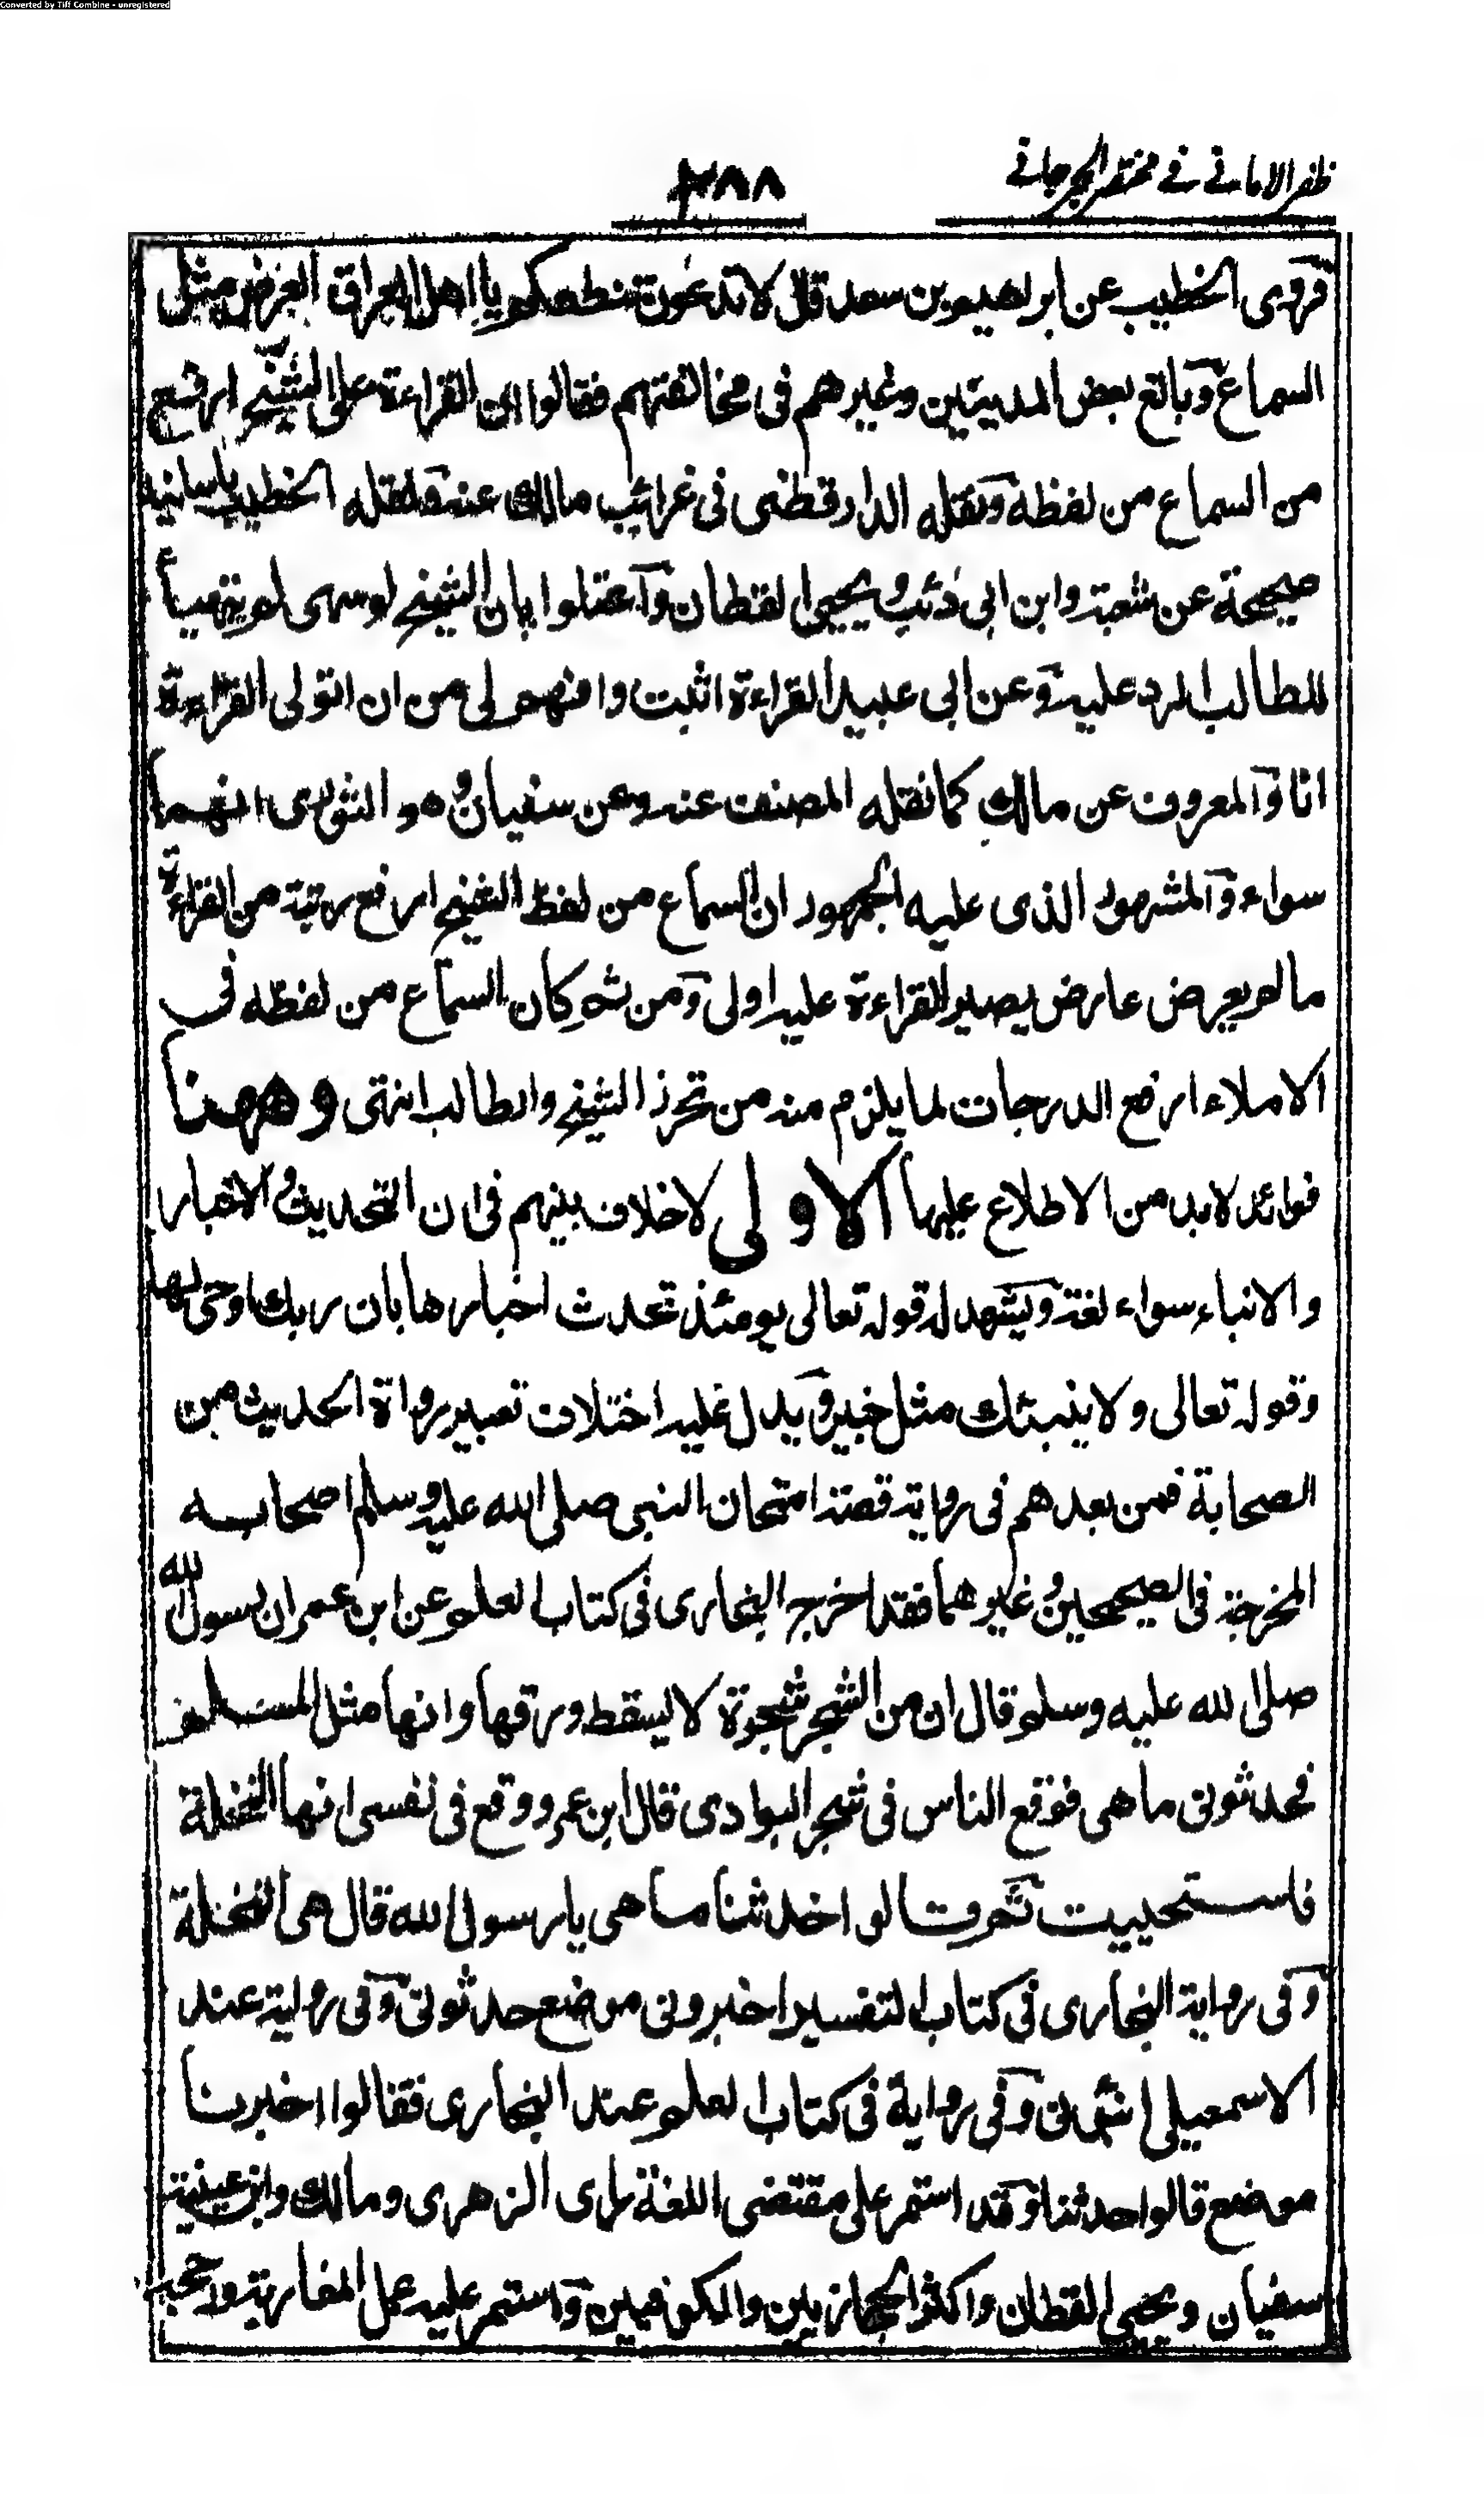 Converted by Tiff Combine - unregistered
ظفر الاماني في مختصر الجرجاني
٢٨٨
فروى الخطيب عن ابراهيم بن سعد قال لا تدعون تنطعكم يا اهل العراق العرض مثل
السماع وبالغ بعض المدنيين وغيرهم في مخالفتهم فقالوا ان القراءة على الشيخ ارفع
من السماع من لفظه ونقله الدارقطنى فى غرائب مالك عنه ونقله الخطيب باسانيد
صحيحة عن شعبة وابن ابى ذئب ويحيى القطان واعتلوا بان الشيخ لو سهى لم يتهيأ
للطالب الرد عليه وعن ابى عبيد القراءة اثبت وافهم لى من ان اتولى القراءة
انا والمعروف عن مالك كما نقله المصنف عنه وعن سفيان وهو الثورى انهما
سواء والمشهور الذى عليه الجمهور ان السماع من لفظ الشيخ ارفع رتبة من القراءة
ما لم يعرض عارض يصير القراءة عليه اولى ومن ثم كان السماع من لفظه فى
الاملاء ارفع الدرجات لما يلزم منه من تحرز الشيخ والطالب انتهى وههنا
فوائد لابد من الاطلاع عليها الاولى لا خلاف بينهم فى ان التحديث والاخبار
والانباء سواء لغة ويشهد له قوله تعالى يومئذ تحدث اخبارها بان ربك اوحى لها
وقوله تعالى ولا ينبئك مثل خبير ويدل عليه اختلاف تعبير رواة الحديث من
الصحابة فمن بعدهم فى رواية قصة امتحان النبى صلى الله عليه وسلم اصحابه
المخرجة فى الصحيحين وغيرهما فقد اخرج البخارى فى كتاب العلم عن ابن عمر ان رسول الله
صلى الله عليه وسلم قال ان من الشجر شجرة لا يسقط ورقها وانها مثل المسلم
فحدثونى ما هى فوقع الناس فى شجر البوادى قال ابن عمر ووقع فى نفسى انها النخلة
فاستحييت ثم قالوا حدثنا ما هى يا رسول الله قال هى النخلة
وفى رواية البخارى فى كتاب التفسير اخبرونى موضع حدثونى وفى رواية عند
الاسمعيلى انبئونى وفى رواية فى كتاب العلم عند البخارى فقالوا اخبرنا
موضع قالوا حدثنا وقد استمر على مقتضى اللغة راى الزهرى ومالك وابن عيينة
سفيان ويحيى القطان واكثر الحجازيين والكوفيين واستمر عليه عمل المغاربة ورجحه